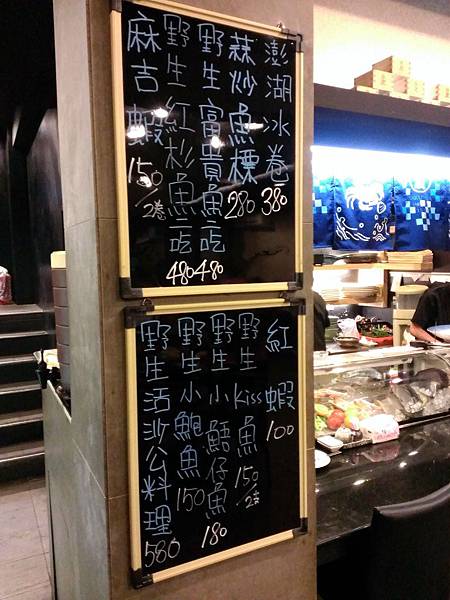 澎湖冰卷380
蒜炒魚標280
野生富貴魚一吃480
野生紅杉魚一吃480
麻吉蝦150/2卷
紅蝦100
野生kiss魚150/2支
野生小鱚仔魚180
野生小鮑魚150
野生活沙公料理580